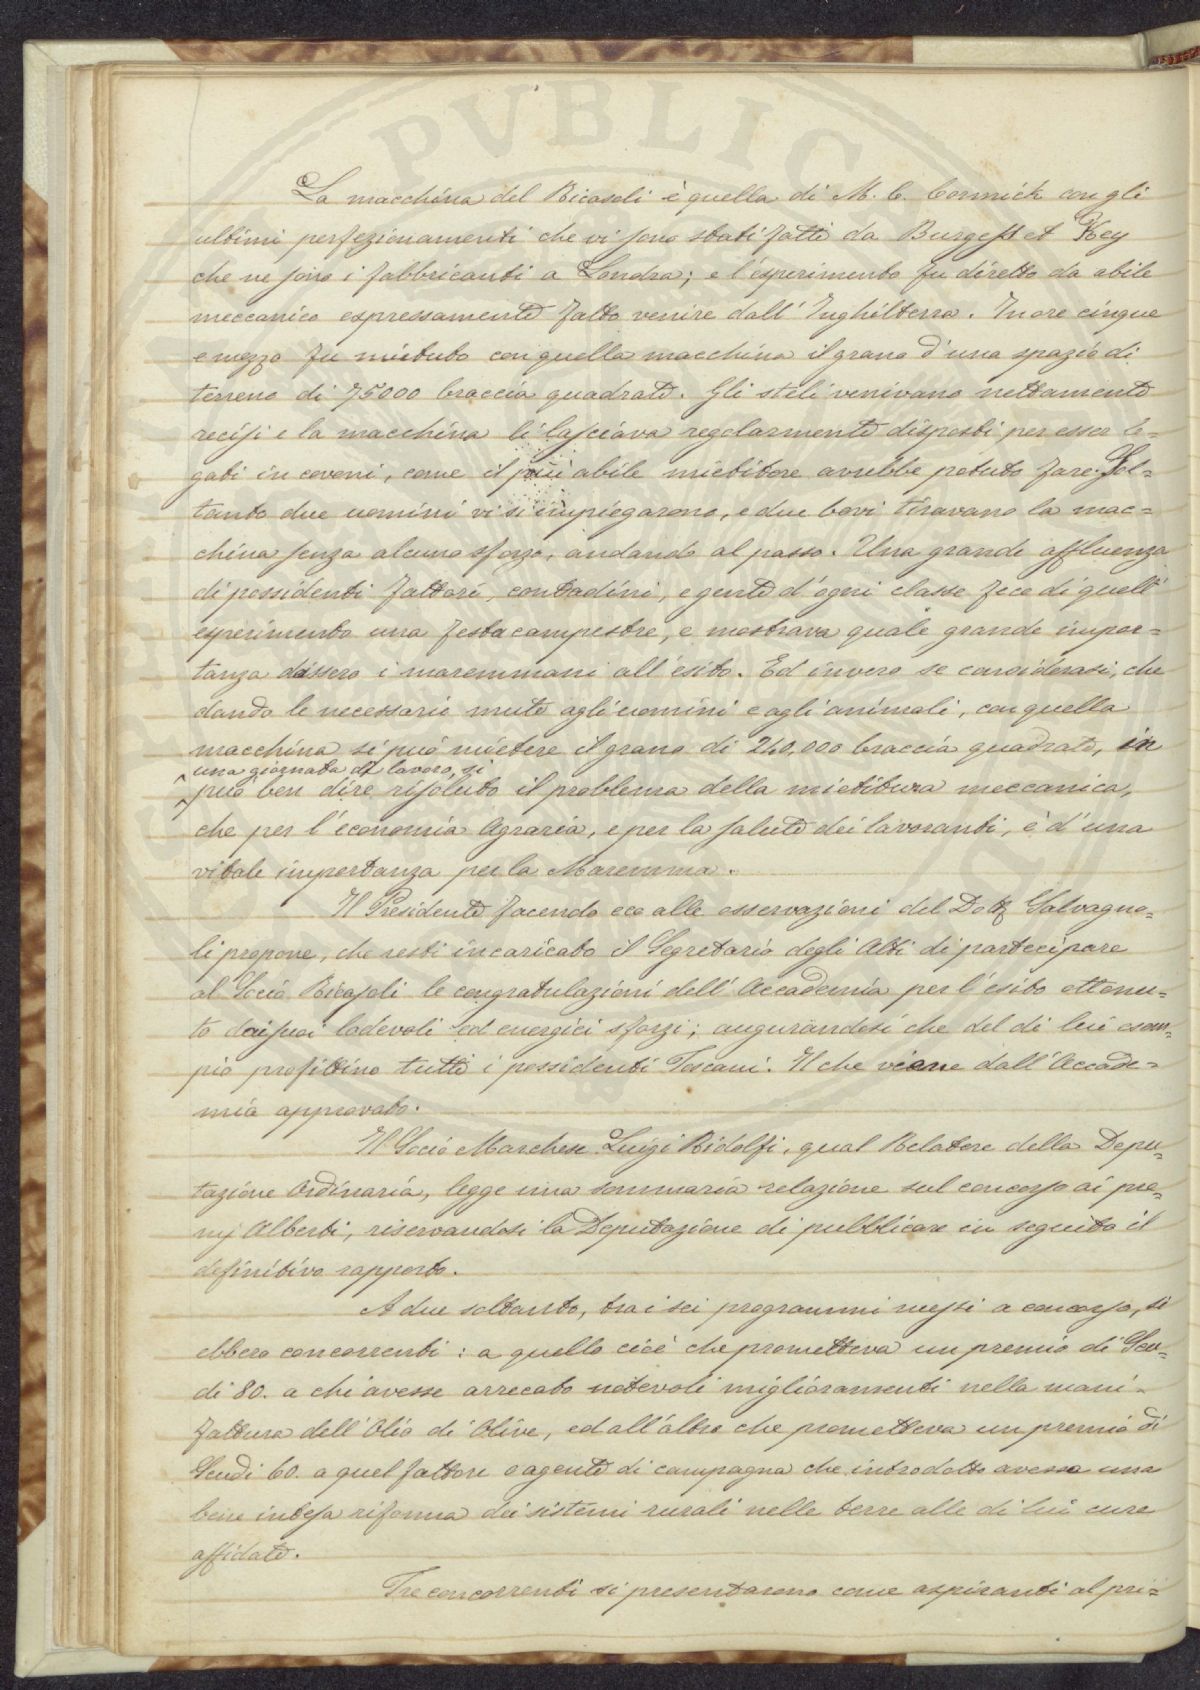 PVBLIC
La macchina del Ricasoli è quella di M. C. Cormick con gli
ultimi perfezionamenti che vi sono stati fatti da Burgess et Key
che ne sono i fabbricanti a Londra; e l'esperimento fu diretto da abile
meccanico espressamente fatto venire dall'Inghilterra. In ore cinque
e mezzo fu mietuto con quella macchina il grano d'uno spazio di
terreno di 75000 braccia quadrate. Gli steli venivano nettamente
recisi e la macchina li lasciava regolarmente disposti per esser le-
gati in covoni, come il più abile mietitore avrebbe potuto fare. Sol-
tanto due uomini vi si impiegarono, e due bovi tiravano la mac-
china senza alcuno sforzo, andando al passo. Una grande affluenza
di possidenti fattori, contadini, e gente d'ogni classe fece di quell'
esperimento una festa campestre, e mostrava quale grande impor-
tanza dassero i maremmani all'esito. Ed invero se considerasi, che
dando le necessarie mute agli uomini e agli animali, con quella
macchina si può mietere il grano di 240,000 braccia quadrate, in
una giornata di lavoro, si
può ben dire risoluto il problema della mietitura meccanica,
che per l'economia Agraria, e per la salute dei lavoranti, è d'una
vitale importanza per la Maremma.
Il Presidente facendo eco alle osservazioni del Dott Salvagno-
li propone, che resti incaricato il Segretario degli Atti di partecipare
al Socio Ricasoli le congratulazioni dell'Accademia per l'esito ottenu-
to dai suoi lodevoli ed energici sforzi; augurandosi che del di lui esem-
pio profittino tutti i possidenti Toscani. Il che viene dall'Accade-
mia approvato.
Il Socio Marchese Luigi Ridolfi, qual Relatore della Depu-
tazione Ordinaria, legge una sommaria relazione sul concorso ai pre-
mj Alberti, riservandosi la Deputazione di pubblicare in seguito il
definitivo rapporto.
A due soltanto, tra i sei programmi messi a concorso, si
ebbero concorrenti: a quello cioè che prometteva un premio di Scu-
di 80. a chi avesse arrecato notevoli miglioramenti nella mani-
fattura dell'Olio di Olive, ed all'altro che prometteva un premio di
Scudi 60. a quel fattore o agente di campagna che introdotto avesse una
bene intesa riforma dei sistemi rurali nelle terre alle di lui cure
affidate.
Tre concorrenti si presentarono come aspiranti al pri-